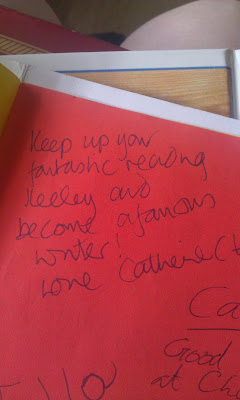 Keep up your
fantastic reading
Keeley and
become a famous
writer!
love Catherine (
Ca
Good
at Che